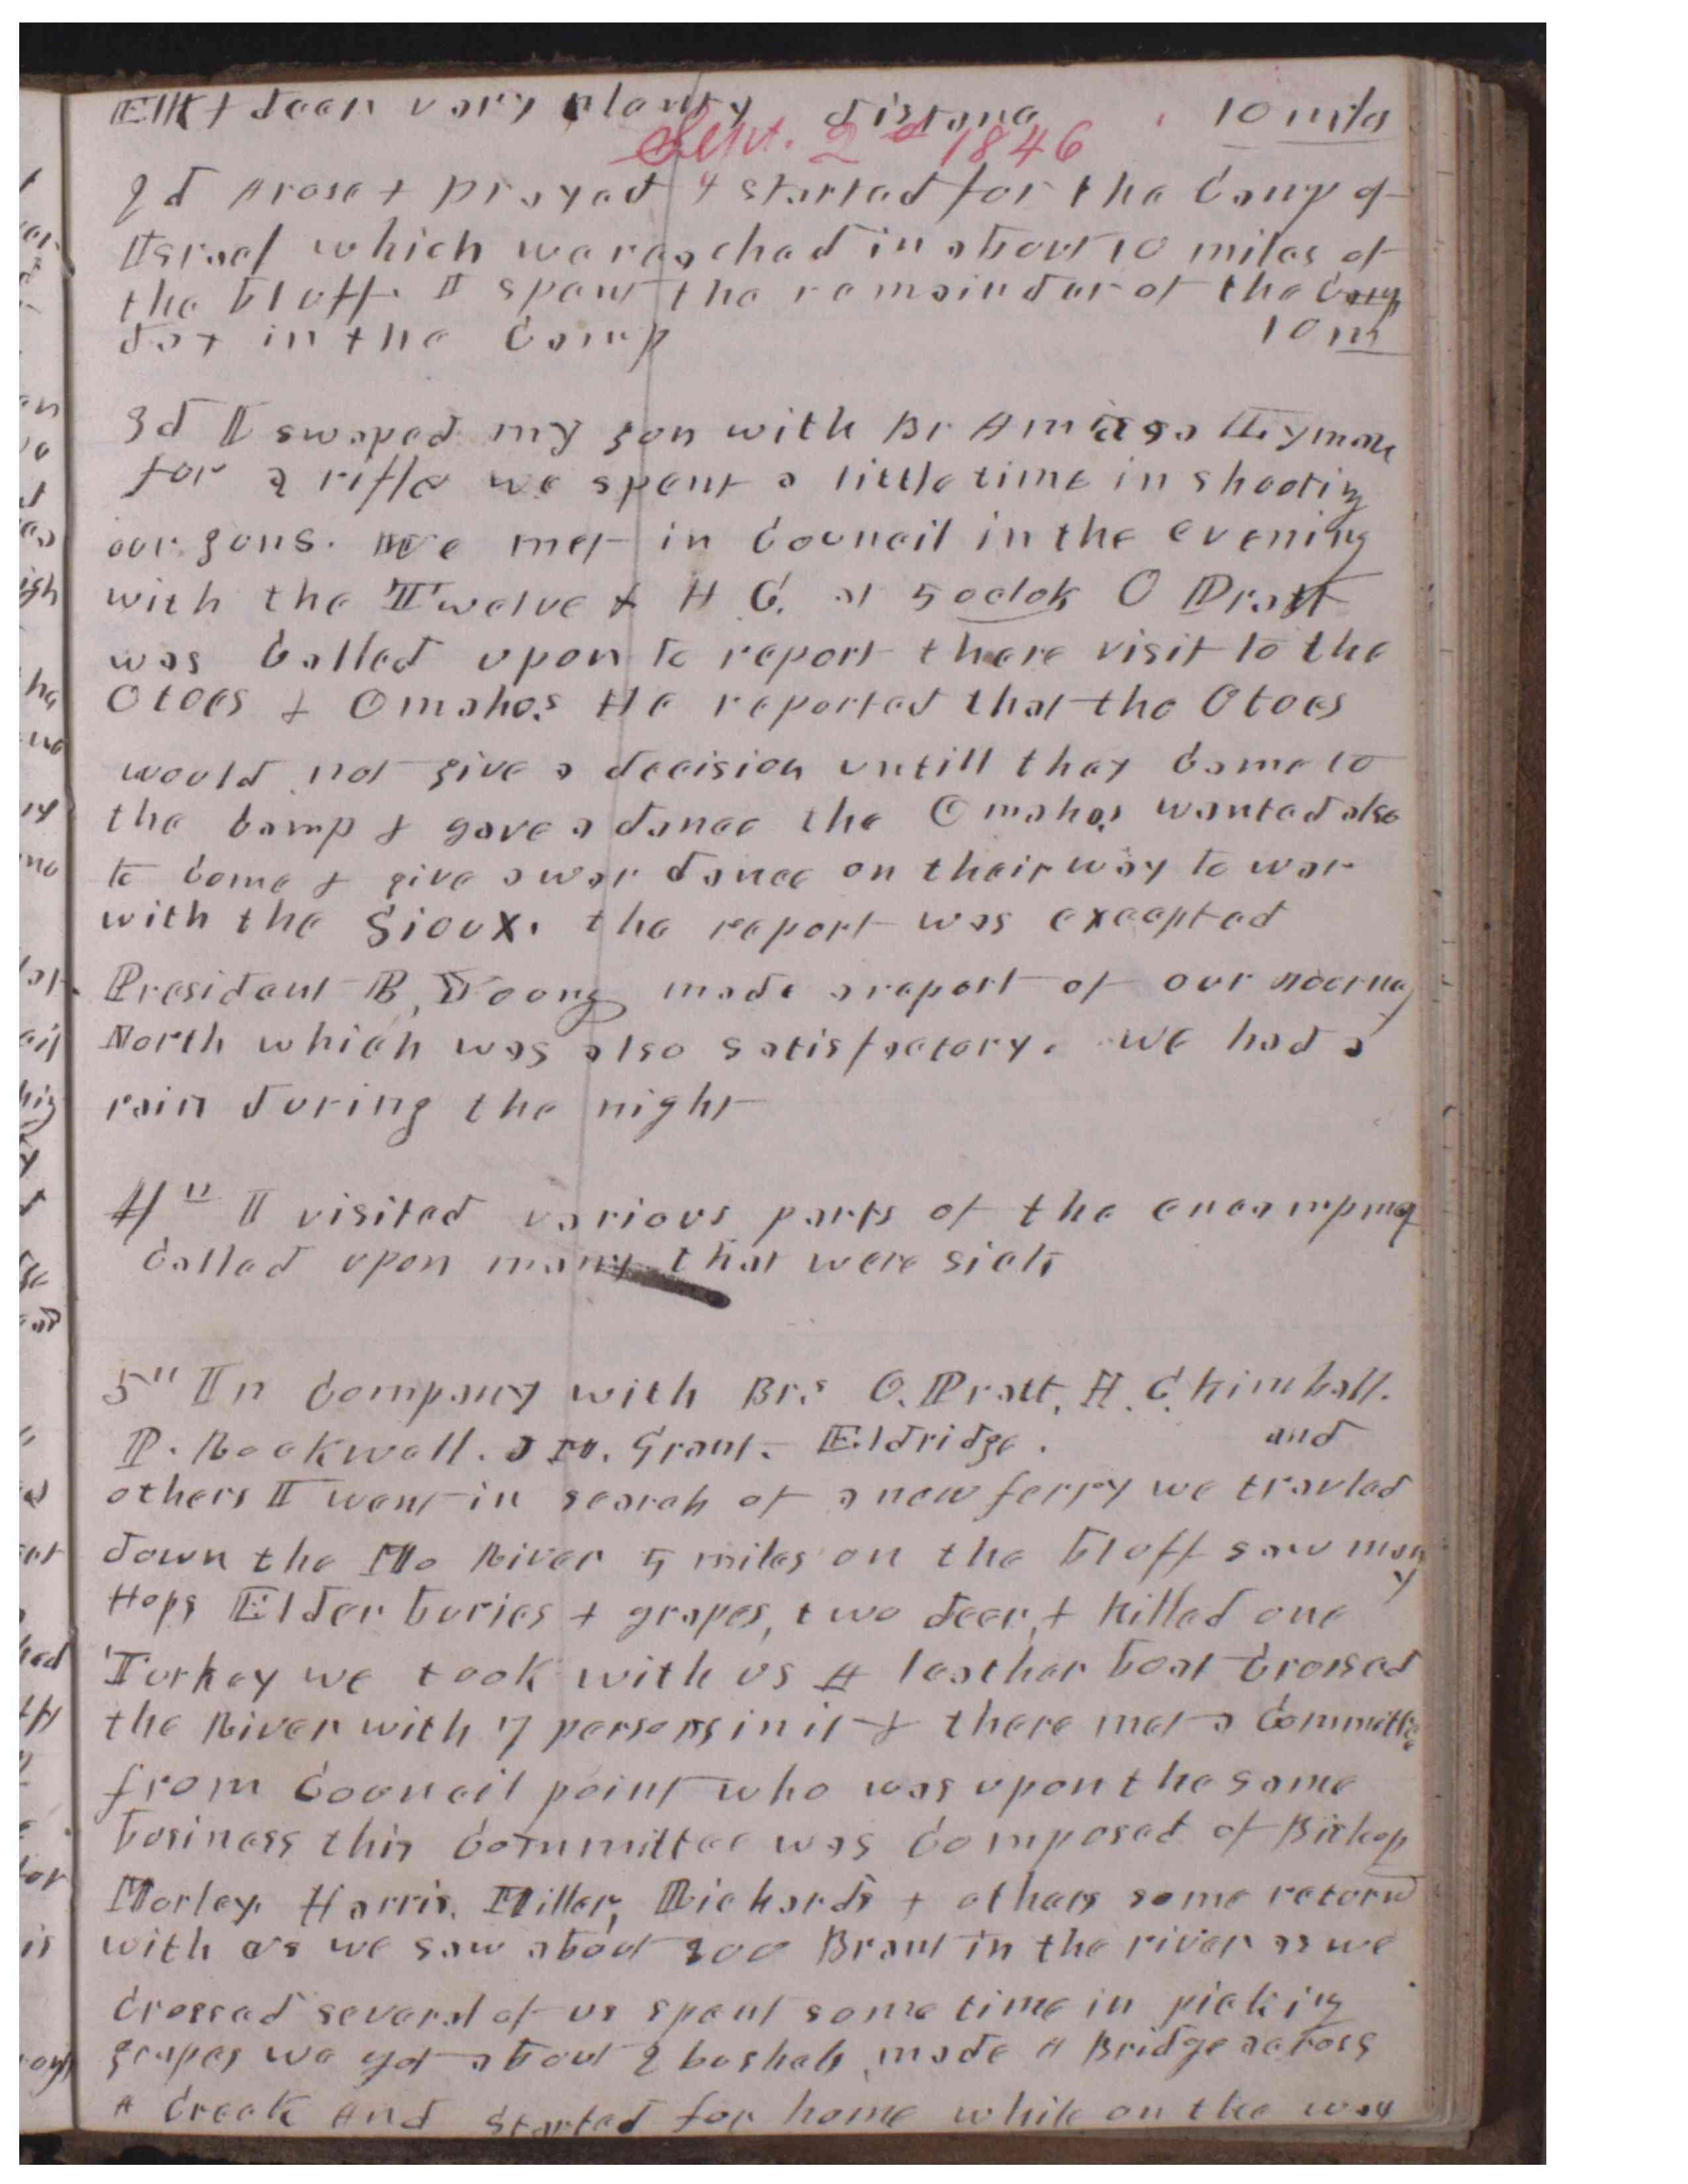 Elk & deer vary plenty distance 10 miles
Sept. 2d 1846
2d Arose & prayed & started for the Camp of
Israel which we reached in about 10 miles of
the bluff. I spent the remainder of the Camp
day in the Camp 10 m
3d I swaped my gun with Br Amasa Lyman
for a rifle we spent a little time in shooting
our guns. We met in Council in the evening
with the Twelve & H C. at 5 oclok O Pratt
was Called upon to report there visit to the
Otoes & Omahas He reported that the Otoes
would not give a decision untill they Came to
the Camp & gave a dance the Omahas wanted also
to Come & give a war dance on their way to war
with the Sioux. the report was excepted
President B, Young made a report of our Journey
North which was also satisfactory. we had a
rain during the night
4" I visited various parts of the encampmet
Called upon many that were sick
5" In Company with Brs O. Pratt, H. C. Kimball.
P. Rockwell. J M. Grant. Eldridge. and
others I went in search of a new ferry we travled
down the Mo River 5 miles on the bluff saw many
Hops Elder buries & grapes, two deer, & killed one
Turkey we took with us A leather boat Crossed
the River with 7 persons in it & there met a Committee
from Council point who was upon the same
business this Committee was Composed of Bishop
Morley. Harris. Miller, Richards & others some returnd
with us we saw about 200 Brant in the river as we
Crossed several of us spent some time in picking
grapes we got about 2 bushels made A Bridge across
A Creek And started for home while on the way